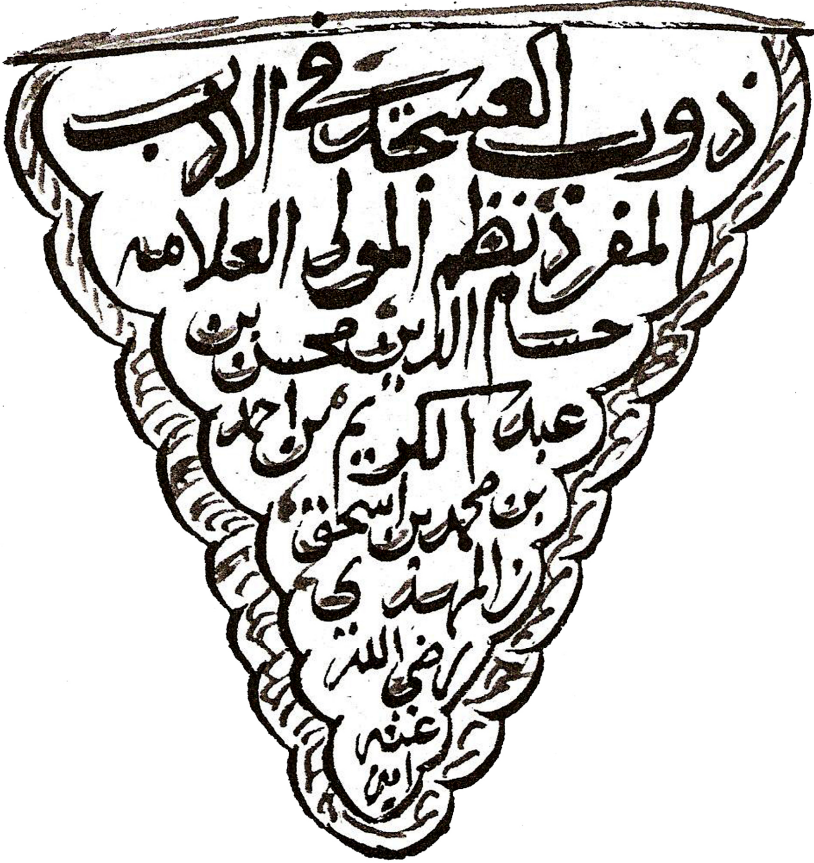 ذوب العسجد في الادب
المفرد نظم المولى العلامه
حسام الدين محسن بن
عبد الكريم بن احمد
بن محمد بن اسحق
بن المهدي
رضي الله
عنه
امين